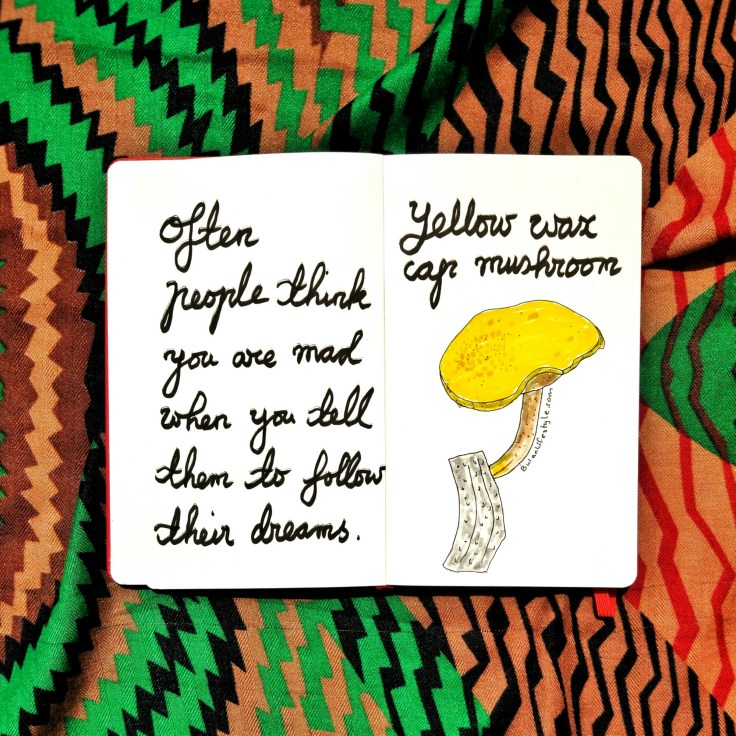 Often
people think
you are mad
when you tell
them to follow
their dreams.
Yellow wax
cap mushroom
BwanLifestyle.com